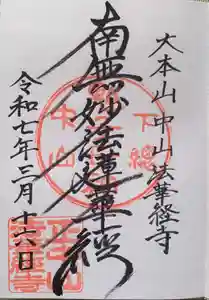 大本山中山法華経寺
南無妙法蓮華経
令和七年三月十六日
下総
中山